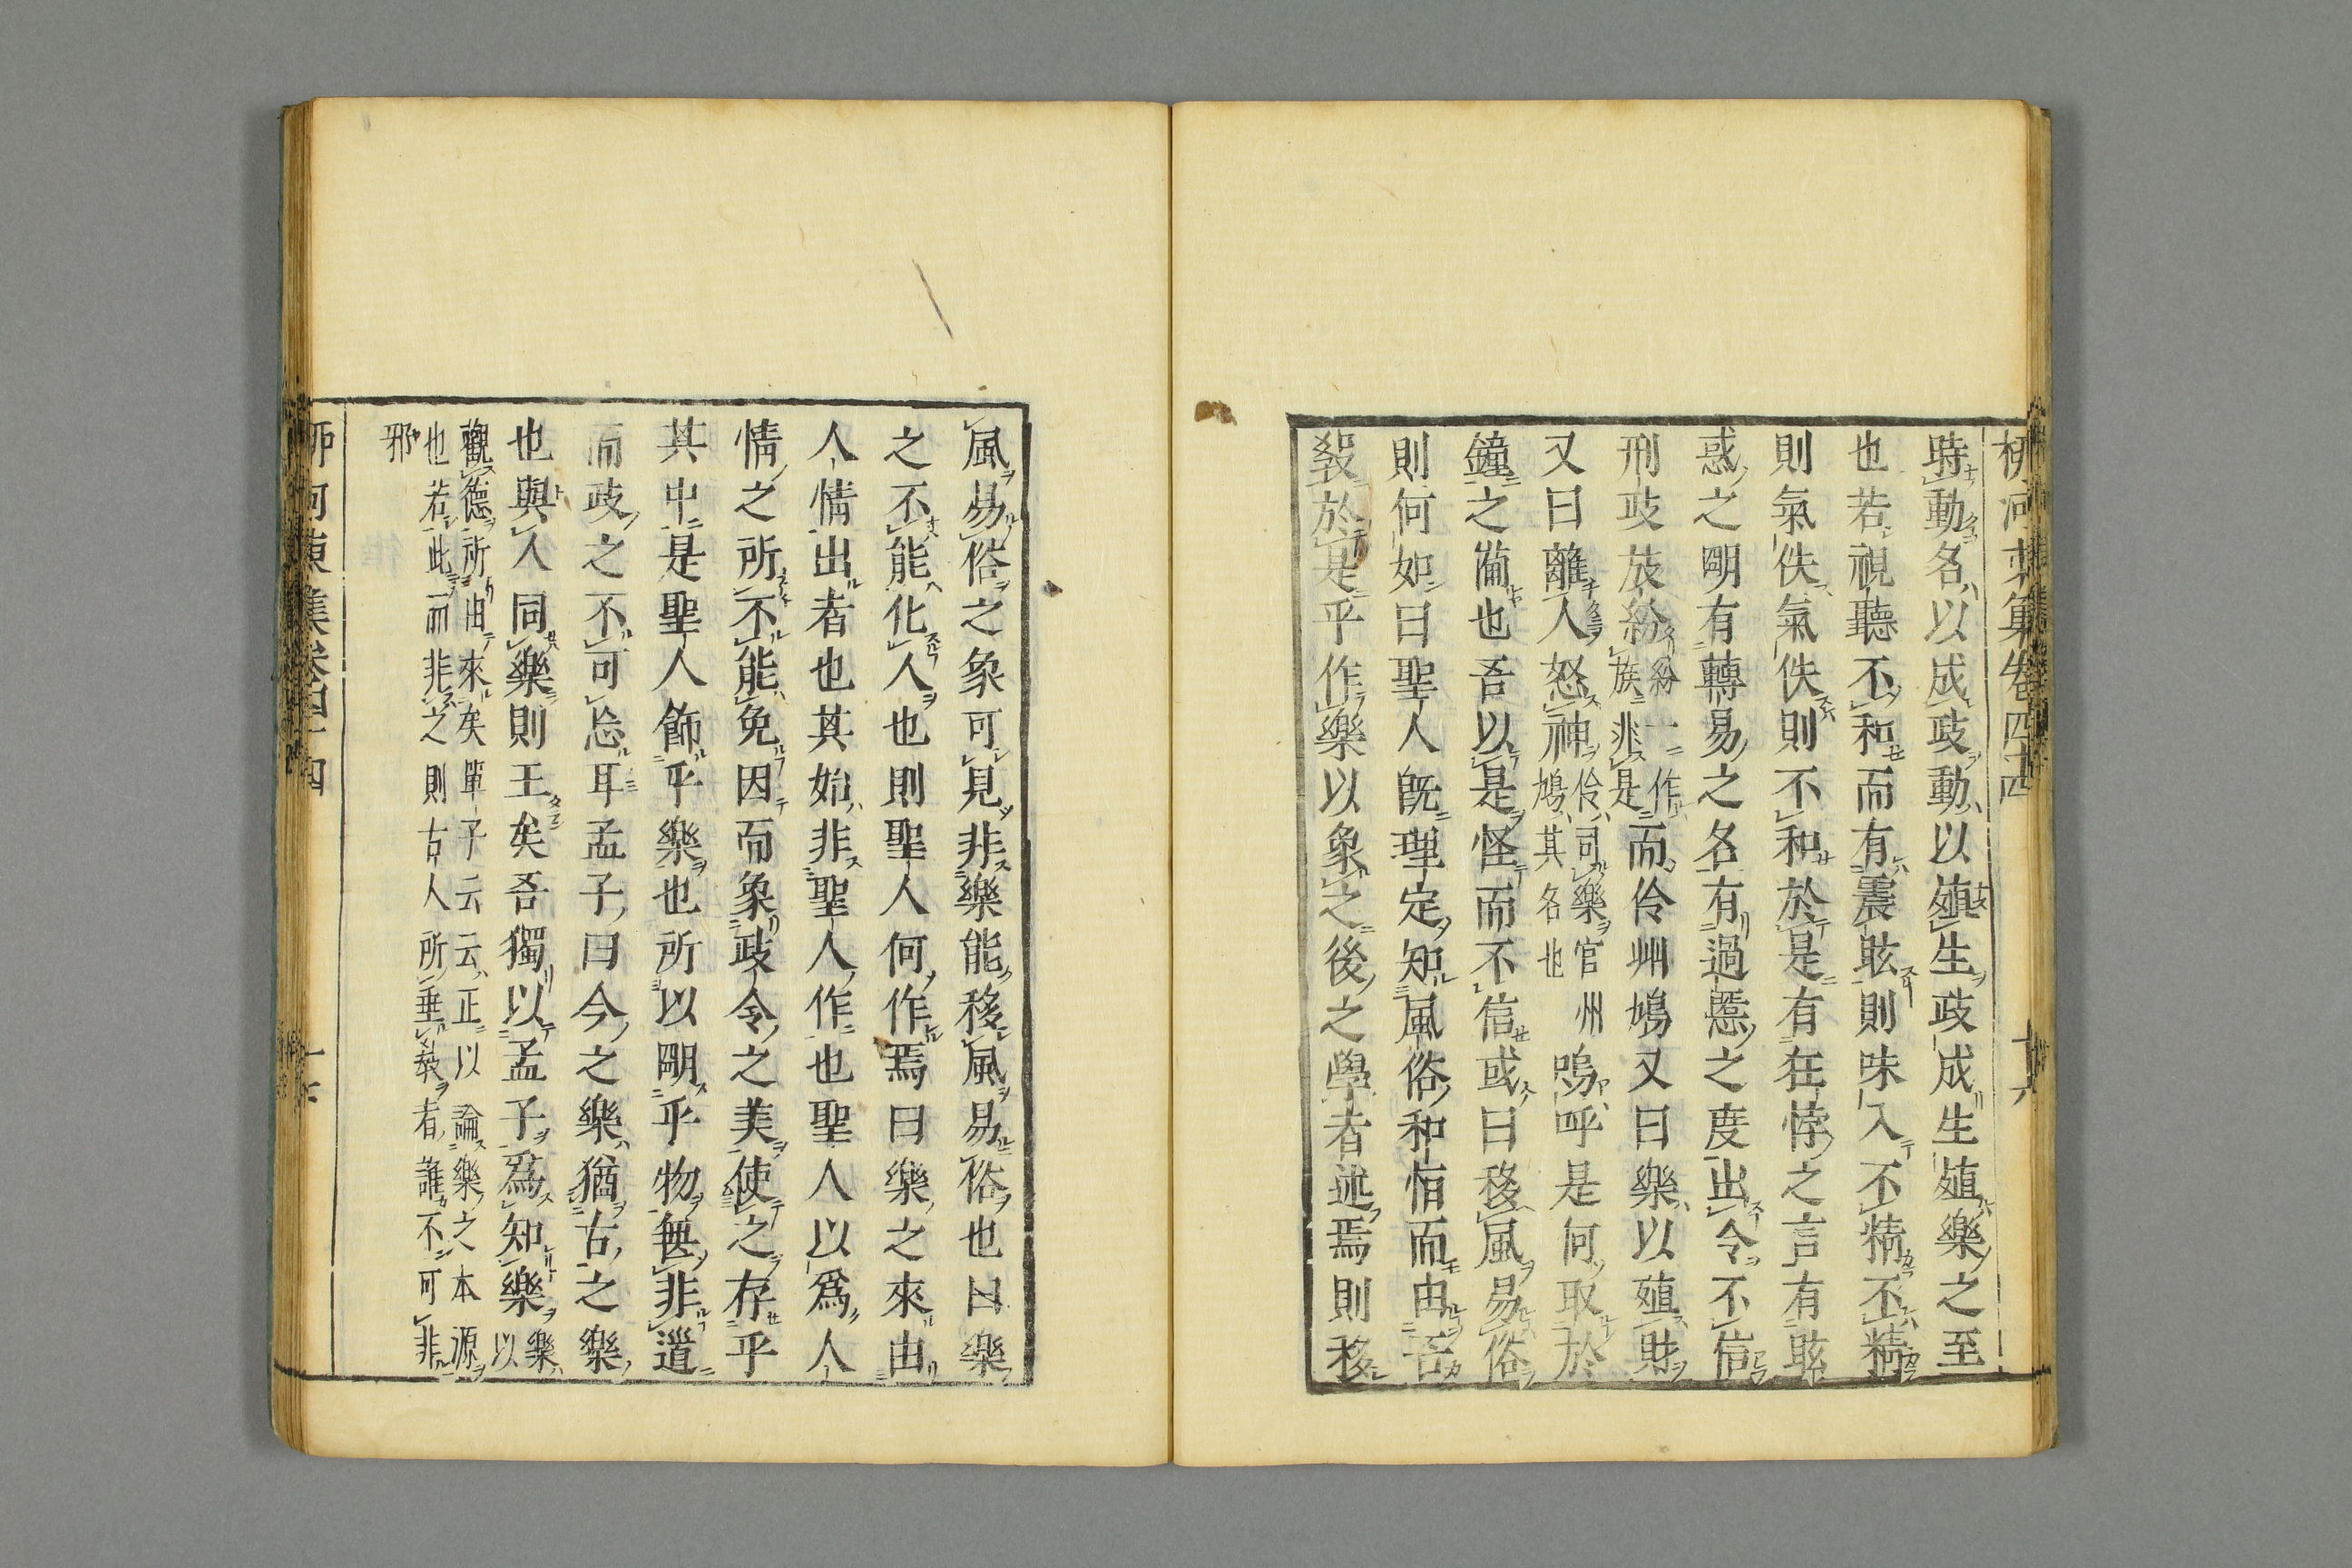 時動名以成政動以殖生政成生殖樂之至
也若視聽不和而有震眩則味入不精不精
則氣佚氣佚則不和於是有狂悖之言有眩
惑之明有轉易之名有過慝之度出令不信
刑政放紛紛一作族非是而伶州鳩又曰樂以殖財
又曰離人怒神伶司樂官州鳩其名也嗚呼是何取於
鐘之備也吾以是怪而不信或曰移風易俗
則何如曰聖人旣理定知風俗和恒而由吾
敎於是乎作樂以象之後之學者述焉則移
風易俗之象可見非樂能移風易俗也曰樂
之不能化人也則聖人何作焉曰樂之來由
人情出者也其始非聖人作也聖人以爲人
情之所不能免因而象政令之美使之存乎
其中是聖人飾乎樂也所以明乎物無非道
而政之不可忘耳孟子曰今之樂猶古之樂
也與人同樂則王矣吾獨以孟子爲知樂樂以
觀德所由來矣單子云云正以論樂之本源
也若此而非之則古人所垂敎者誰不可非
邪
柳河東集卷四十四